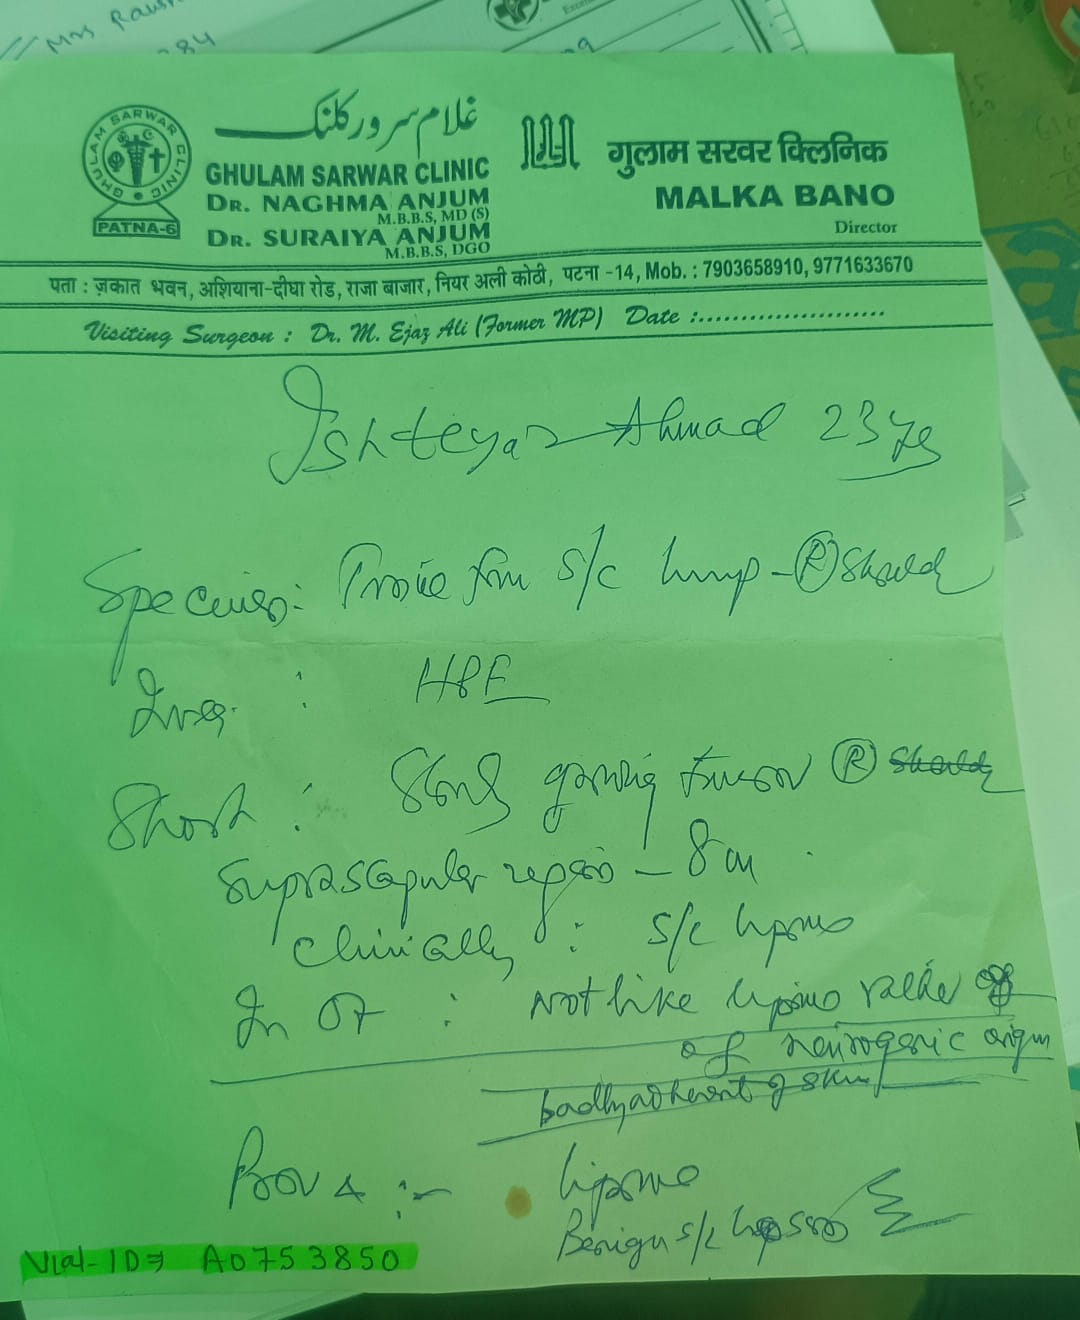 Mrs. Raush
284
غلام سرور کلنک
GHULAM SARWAR CLINIC
PATNA-6
GHULAM SARWAR CLINIC
DR. NAGHMA ANJUM
M.B.B.S, MD (S)
DR. SURAIYA ANJUM
M.B.B.S, DGO
गुलाम सरवर क्लिनिक
MALKA BANO
Director
पता : ज़कात भवन, अशियाना-दीघा रोड, राजा बाजार, नियर अली कोठी, पटना -14, Mob. : 7903658910, 9771633670
Visiting Surgeon : Dr. M. Ejaz Ali (Former MP) Date :......................
Ishteyaz Ahmad 23 yrs
from s/c lump - (R) Should
: HPE
Short :
growing (R) Should
Suprascapular region - 8 cm
Clinically : s/c lipoma
In OT : Not like lipoma
of neurogenic origin
badly adherent skin
Prov :- lipoma
Benign s/c
Vial-ID⇒ A0753850